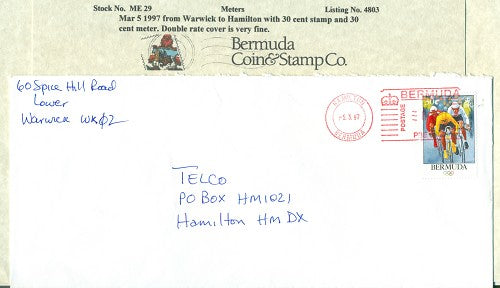 Stock No. ME 29 Meters Listing No. 4803
Mar 5 1997 from Warwick to Hamilton with 30 cent stamp and 30
cent meter. Double rate cover is very fine.
Bermuda
Coin&Stamp Co.
60 Spice Hill Road
Lower
Warwick WK02
HAMILTON
-5.3.97
BERMUDA
BERMUDA
POSTAGE
BERMUDA
TELCO
PO Box HM1021
Hamilton HM DX